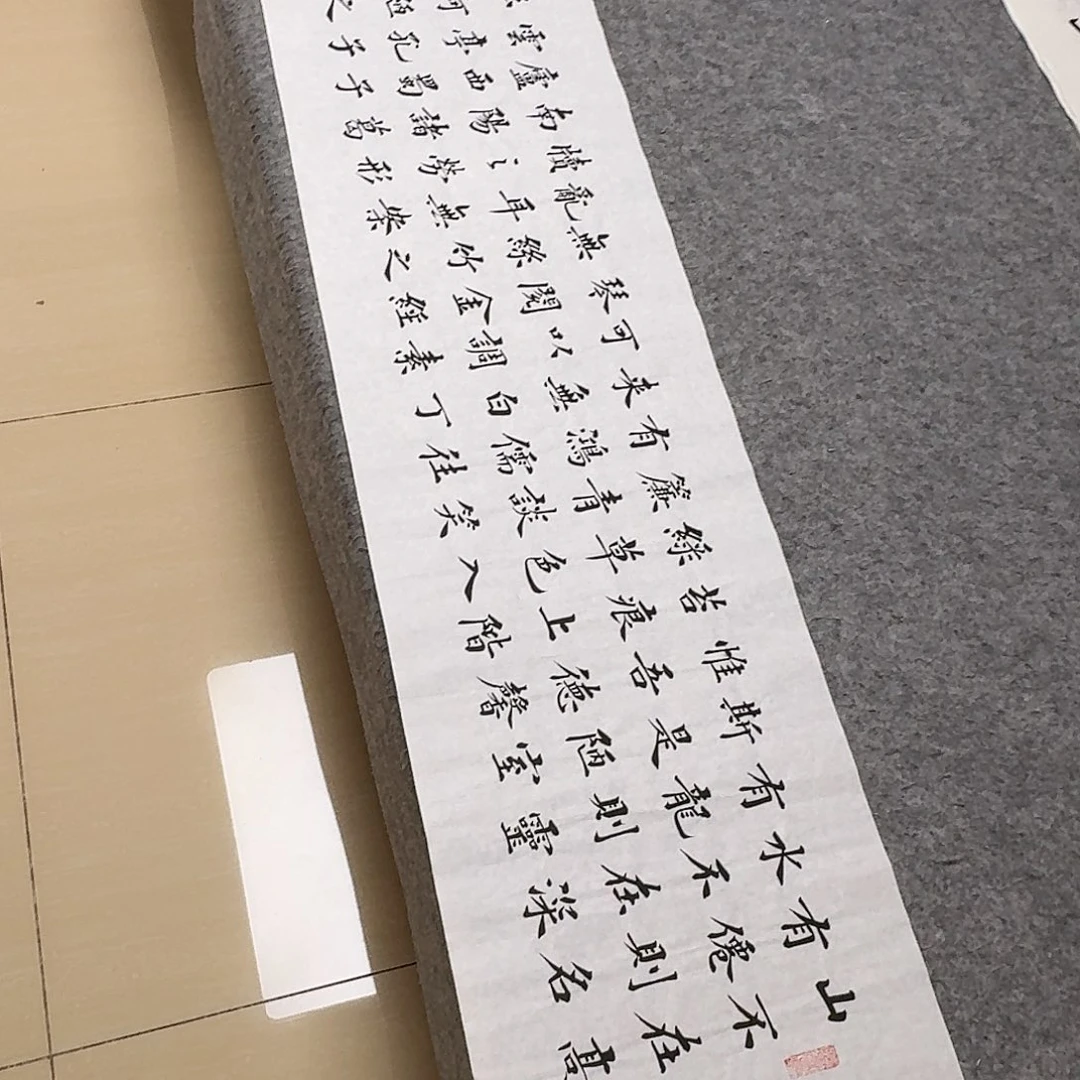 山不在高
有僊則名
水不在深
有龍則靈
斯是陋室
惟吾德馨
苔痕上階
綠草色入
簾青談笑
有鴻儒往
来無白丁
可以調素
琴閱金經
無絲竹之
亂耳無案
牘之勞形
南陽諸葛
廬西蜀子
雲亭孔子
何陋之